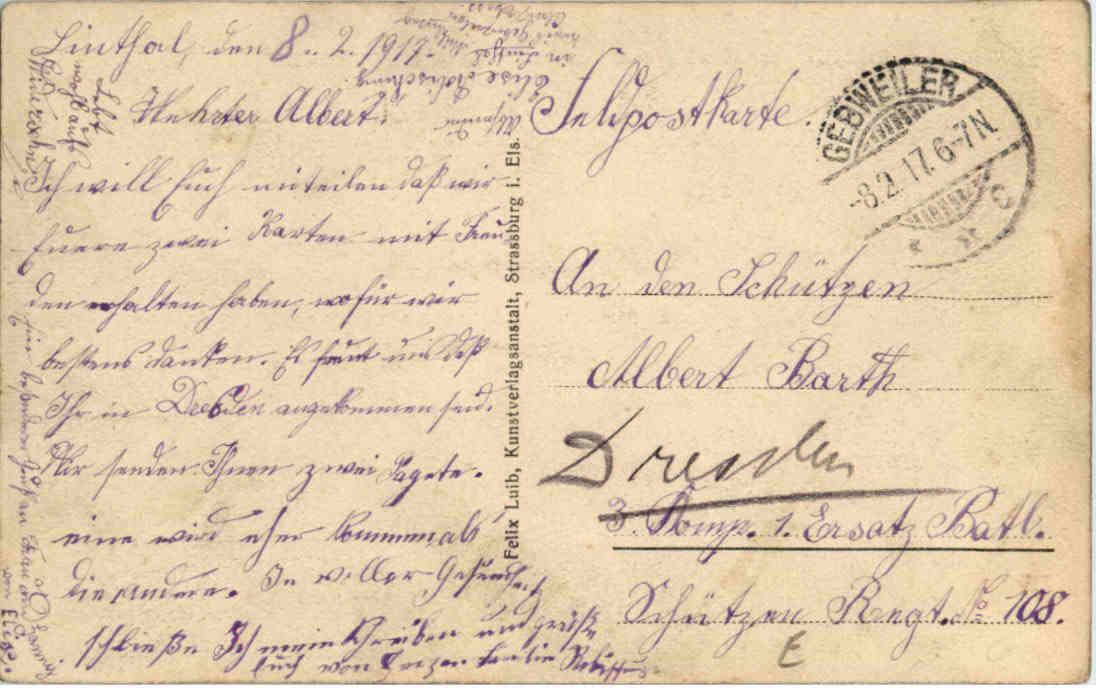 Linthal, den 8. 2. 1917.
Wehrter Albert.
Ich will Euch mitteilen daß wir
Euere zwei Karten mit Freu
den erhalten haben, wofür wir
bestens danken. Es freut uns daß
Ihr in Dresden angekommen seid.
Wir senden Ihnen zwei Pagete.
eine wird eher kommen als
die andere. In voller Gesundheit
schließe Ich mein Schreiben und grüße
Euch von Herzen Familie
Elise
in Linthal
Lebt
wohl auf
Wiedersehn
ein besonderen Gruß an
von Elise.
Felix Luib, Kunstverlagsanstalt, Strassburg i. Els.
Feldpostkarte.
GEBWEILER
-8.2.17.6-7N.
An den Schützen
Albert Barth
Dresden
3. Komp. 1. Ersatz Batl.
Schützen Regt. No 108.
E